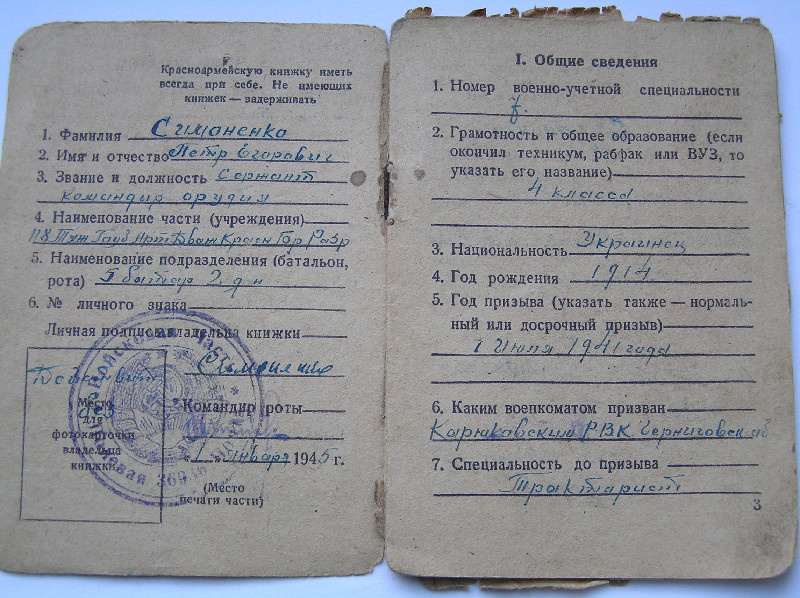 Красноармейскую книжку иметь
всегда при себе. Не имеющих
книжек — задерживать
1. Фамилия Симоненко
2. Имя и отчество Петр Егорович
3. Звание и должность Сержант
командир орудия
4. Наименование части (учреждения)
118 Тяж Гауб Арт Красн
5. Наименование подразделения (батальон,
рота) 1 батар 2 д-н
6. № личного знака
Личная подпись владельца книжки
Командир роты
Место
для
фотокарточки
владельца
книжки
Войсковая часть
Полевая
1 Января 1945 г.
(Место
печати части)
I. Общие сведения
1. Номер военно-учетной специальности
2. Грамотность и общее образование (если
окончил техникум, рабфак или ВУЗ, то
указать его название)
4 класса
3. Национальность Украинец
4. Год рождения 1914
5. Год призыва (указать также — нормаль-
ный или досрочный призыв)
1 Июля 1941 года
6. Каким военкоматом призван
Карюковский РВК Черниговск об
7. Специальность до призыва
Тракторист
3